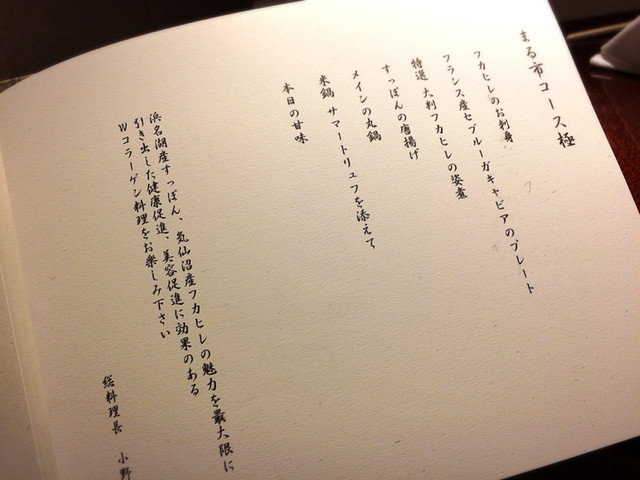 まる市コース極
フカヒレのお刺身
フランス産セブルーガキャビアのプレート
特選 大判フカヒレの姿煮
すっぽんの唐揚げ
メインの丸鍋
米鍋 サマートリュフを添えて
本日の甘味
浜名湖産すっぽん、気仙沼産フカヒレの魅力を最大限に
引き出した健康促進、美容促進に効果のある
Wコラーゲン料理をお楽しみ下さい
総料理長 小野